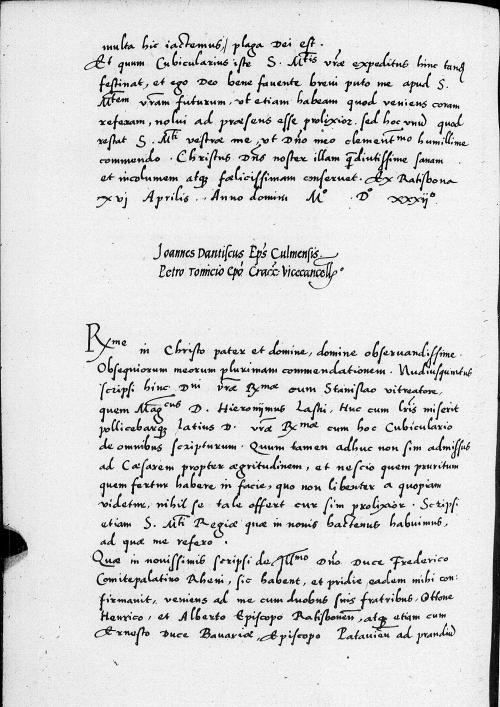 multa hic iactemus, plaga Dei est.
Et quum Cubicularius iste S. Mtis vrae expeditus hinc tandē
festinat, et ego Deo bene favente brevi puto me apud S.
Mtem vram futurum, vt etiam habeam quod veniens coram
referam, nolui ad praesens esse prolixior. sed hoc vnū quod
restat S. Mti vestrae me, vt Dno meo clementmo humillime
commendo. Christus Dns noster illam q̄diutissime sanam
et incolumem atq; foelicissimam conservet. Ex Ratisbona
xvj Aprilis. Anno domini Mo Do xxxijo
Joannes Dantiscus Eps Culmensis
Petro Tomicio Epo Cracc Vicecancell.
Rxme in Christo pater et domine, domine observandissime.
Obsequiorum meorum plurimam commendationem. Nudiusquintus
scripsi hinc Dni vrae Rxmae cum Stanislao vitreatore,
quem Magcus D. Hieronimus Laski, huc cum lris miserit
pollicebarq; latius D. vrae Rxmae cum hoc Cubiculario
de omnibus scripturum. Quum tamen adhuc non sim admissus
ad Caesarem propter aegritudinem, et nescio quem pruritum
quem fertur habere in facie, quo non libenter a quopiam
videtur, nihil se tale offert cur sim prolixior. Scripsi
etiam S. Mti Regiae quae in novis hactenus habuimus,
ad quae me refero.
Quae in novissimis scripsi de Illmo Dno Duce Frederico
Comitepalatino Rheni, sic habent, et pridie eadem mihi con:
firmavit, veniens ad me cum duobus suis fratribus. Ottone
Henrico, et Alberto Episcopo Ratisbonen, atq; etiam cum
Ernesto Duce Bavariae, Episcopo Patavien ad prandiū